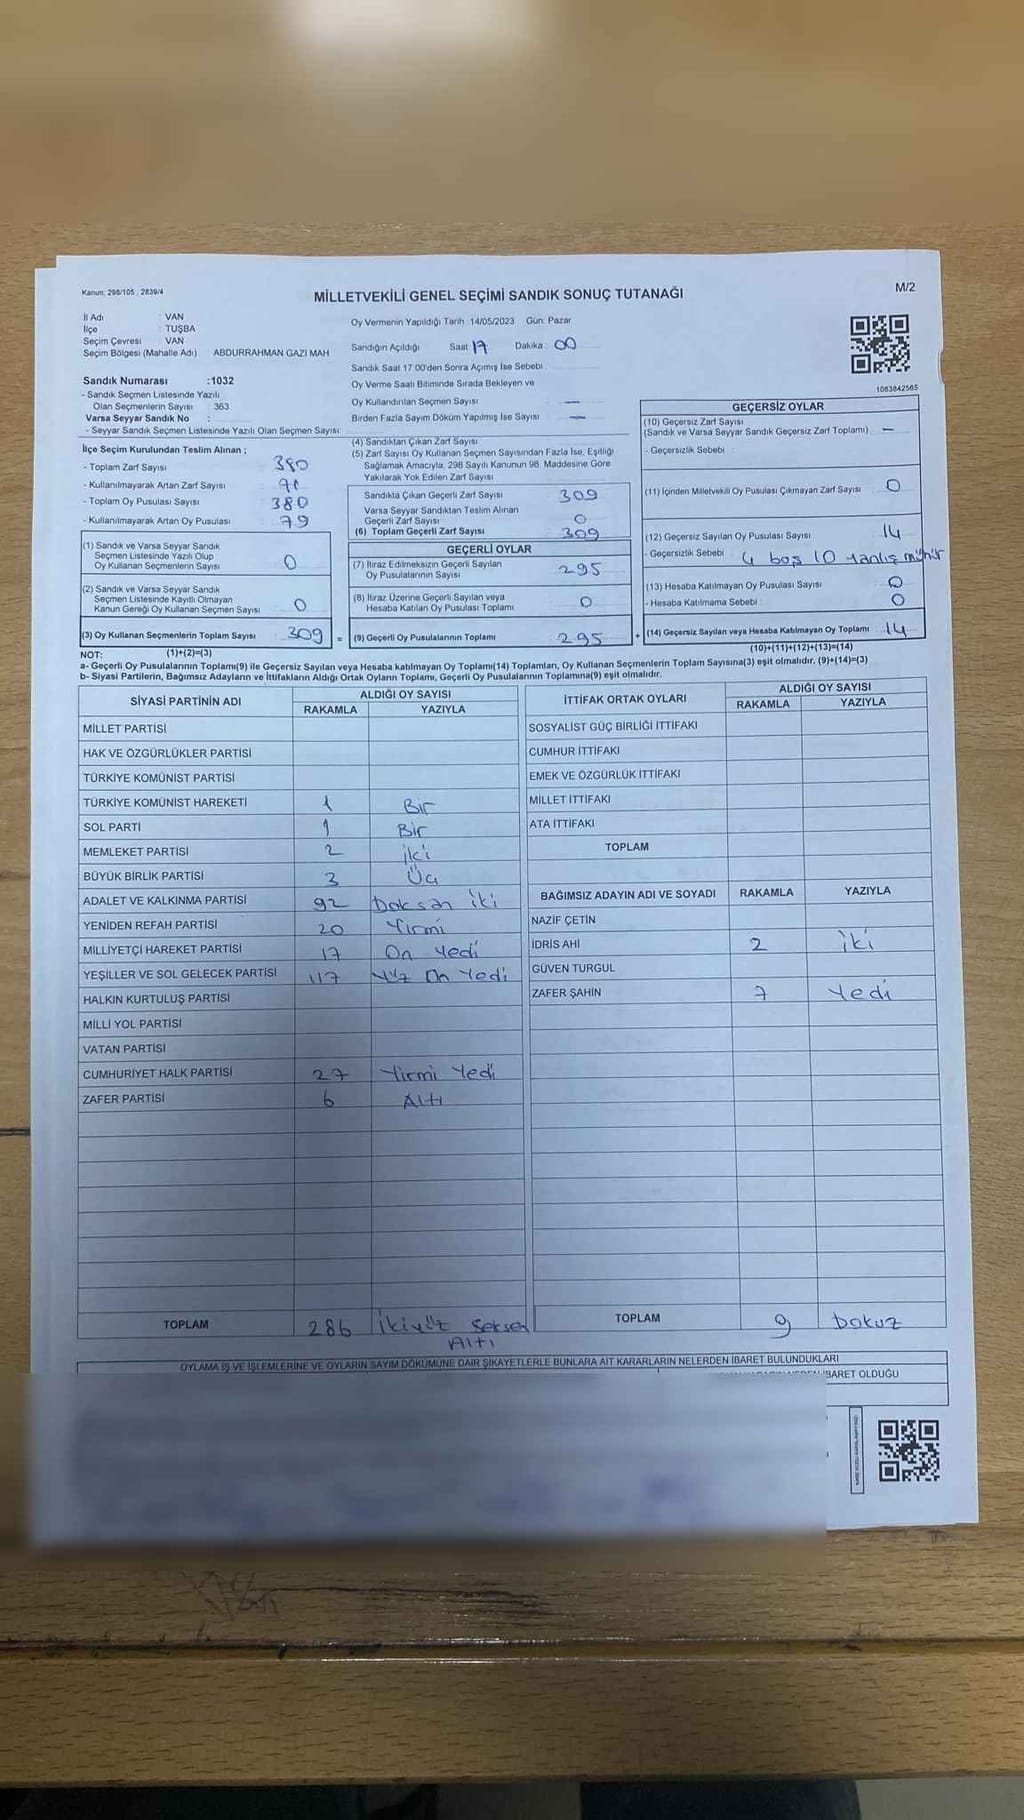 Kanun: 298/105 , 2839/4
MİLLETVEKİLİ GENEL SEÇİMİ SANDIK SONUÇ TUTANAĞI
M/2
İl Adı : VAN
İlçe : TUŞBA
Seçim Çevresi : VAN
Seçim Bölgesi (Mahalle Adı) ABDURRAHMAN GAZI MAH
Sandık Numarası :1032
- Sandık Seçmen Listesinde Yazılı
Olan Seçmenlerin Sayısı : 363
Varsa Seyyar Sandık No :
- Seyyar Sandık Seçmen Listesinde Yazılı Olan Seçmen Sayısı :
Oy Vermenin Yapıldığı Tarih :14/05/2023 Gün: Pazar
Sandığın Açıldığı Saat 17 Dakika : 00
Sandık Saat 17 00'den Sonra Açımış İse Sebebi :
Oy Verme Saati Bitiminde Sırada Bekleyen ve
Oy Kullandırılan Seçmen Sayısı : —
Birden Fazla Sayım Döküm Yapılmış İse Sayısı : —
1083842565
İlçe Seçim Kurulundan Teslim Alınan ;
- Toplam Zarf Sayısı : 380
- Kullanılmayarak Artan Zarf Sayısı : 71
- Toplam Oy Pusulası Sayısı : 380
- Kullanılmayarak Artan Oy Pusulası : 79
(1) Sandık ve Varsa Seyyar Sandık
Seçmen Listesinde Yazılı Olup
Oy Kullanan Seçmenlerin Sayısı : 0
(2) Sandık ve Varsa Seyyar Sandık
Seçmen Listesinde Kayıtlı Olmayan
Kanun Gereği Oy Kullanan Seçmen Sayısı : 0
(3) Oy Kullanan Seçmenlerin Toplam Sayısı : 309 =
(4) Sandıktan Çıkan Zarf Sayısı :
(5) Zarf Sayısı Oy Kullanan Seçmen Sayısından Fazla İse, Eşitliği
Sağlamak Amacıyla, 298 Sayılı Kanunun 98. Maddesine Göre
Yakılarak Yok Edilen Zarf Sayısı :
Sandıkla Çıkan Geçerli Zarf Sayısı : 309
Varsa Seyyar Sandıktan Teslim Alınan
Geçerli Zarf Sayısı : 0
(6) Toplam Geçerli Zarf Sayısı : 309
GEÇERLİ OYLAR
(7) İtiraz Edilmeksizin Geçerli Sayılan
Oy Pusulalarının Sayısı : 295
(8) İtiraz Üzerine Geçerli Sayılan veya
Hesaba Katılan Oy Pusulası Toplamı : 0
(9) Geçerli Oy Pusulalarının Toplamı : 295 +
GEÇERSİZ OYLAR
(10) Geçersiz Zarf Sayısı
(Sandık ve Varsa Seyyar Sandık Geçersiz Zarf Toplamı) : —
- Geçersizlik Sebebi :
(11) İçinden Milletvekili Oy Pusulası Çıkmayan Zarf Sayısı : 0
(12) Geçersiz Sayılan Oy Pusulası Sayısı : 14
- Geçersizlik Sebebi : 4 boş 10 yanlış mühür
(13) Hesaba Katılmayan Oy Pusulası Sayısı : 0
- Hesaba Katılmama Sebebi : 0
(14) Geçersiz Sayılan veya Hesaba Katılmayan Oy Toplamı : 14
NOT: (1)+(2)=(3)
(10)+(11)+(12)+(13)=(14)
a- Geçerli Oy Pusulalarının Toplamı(9) ile Geçersiz Sayılan veya Hesaba katılmayan Oy Toplamı(14) Toplamları, Oy Kullanan Seçmenlerin Toplam Sayısına(3) eşit olmalıdır. (9)+(14)=(3)
b- Siyasi Partilerin, Bağımsız Adayların ve İttifakların Aldığı Ortak Oyların Toplamı, Geçerli Oy Pusulalarının Toplamına(9) eşit olmalıdır.
SİYASİ PARTİNİN ADI ALDIĞI OY SAYISI
RAKAMLA YAZIYLA
MİLLET PARTİSİ
HAK VE ÖZGÜRLÜKLER PARTİSİ
TÜRKİYE KOMÜNİST PARTİSİ
TÜRKİYE KOMÜNİST HAREKETİ 1 Bir
SOL PARTİ 1 Bir
MEMLEKET PARTİSİ 2 iki
BÜYÜK BİRLİK PARTİSİ 3 Üç
ADALET VE KALKINMA PARTİSİ 92 Doksan iki
YENİDEN REFAH PARTİSİ 20 Yirmi
MİLLİYETÇİ HAREKET PARTİSİ 17 On Yedi
YEŞİLLER VE SOL GELECEK PARTİSİ 117 Yüz On Yedi
HALKIN KURTULUŞ PARTİSİ
MİLLİ YOL PARTİSİ
VATAN PARTİSİ
CUMHURİYET HALK PARTİSİ 27 Yirmi Yedi
ZAFER PARTİSİ 6 Altı
TOPLAM 286 İkiyüz Seksen
Altı
İTTİFAK ORTAK OYLARI ALDIĞI OY SAYISI
RAKAMLA YAZIYLA
SOSYALİST GÜÇ BİRLİĞİ İTTİFAKI
CUMHUR İTTİFAKI
EMEK VE ÖZGÜRLÜK İTTİFAKI
MİLLET İTTİFAKI
ATA İTTİFAKI
TOPLAM
BAĞIMSIZ ADAYIN ADI VE SOYADI RAKAMLA YAZIYLA
NAZİF ÇETİN
İDRİS AHİ 2 iki
GÜVEN TURGUL
ZAFER ŞAHİN 7 Yedi
TOPLAM 9 Dokuz
OYLAMA İŞ VE İŞLEMLERİNE VE OYLARIN SAYIM DÖKÜMÜNE DAİR ŞİKAYETLERLE BUNLARA AİT KARARLARIN NELERDEN İBARET BULUNDUKLARI
BARET OLDUĞU